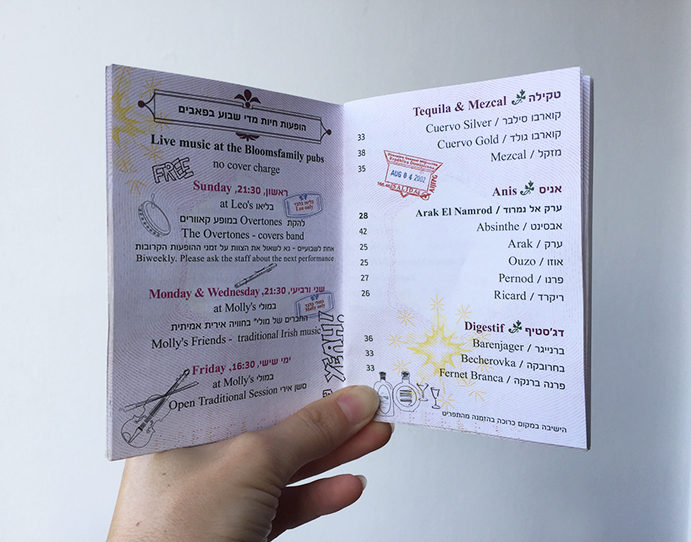 הופעות חיות מדי שבוע בפאבים
Live music at the Bloomsfamily pubs
no cover charge
FREE
Sunday, 21:30, ראשון
at Leo's בליאו
Leo only
להקת Overtones במופע קאוורים
The Overtones - covers band
אחת לשבועיים - נא לשאול את הצוות על זמני ההופעות הקרובות
Biweekly. Please ask the staff about the next performance
Monday & Wednesday, 21:30, שני ורביעי
at Molly's במולי
החברים של מולי בחוויה אירית אמיתית
Molly's Friends - traditional Irish music
YEAH!
Friday, 16:30, ימי שישי
at Molly's במולי
Open Traditional Session סשן אירי
Tequila & Mezcal טקילה
33 Cuervo Silver / קוארבו סילבר
38 Cuervo Gold / קוארבו גולד
35 Mezcal / מזקל
AUG 04 2002
Anis אניס
28 Arak El Namrod / ערק אל נמרוד
42 Absinthe / אבסינט
25 Arak / ערק
25 Ouzo / אוזו
27 Pernod / פרנו
26 Ricard / ריקרד
Digestif דג'סטיף
36 Barenjager / ברנייגר
33 Becherovka / בחרובקה
33 Fernet Branca / פרנה ברנקה
הישיבה במקום כרוכה בהזמנה מהתפריט